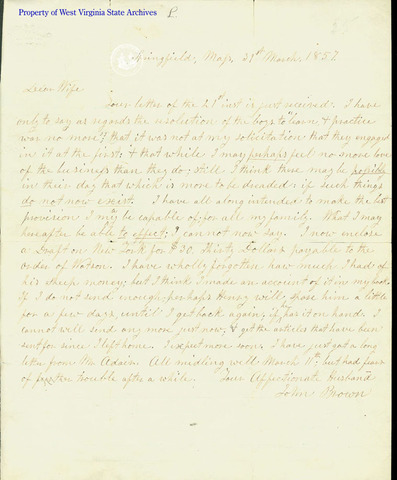 Property of West Virginia State Archives
Springfield, Mass, 31st March, 1857
Dear Wife
Your letter of the 21st inst is just received. I have
only to say as regards the resolution of the boys to learn, & practice
war no more; that it was not at my solicitation that they engaged
in it at the first: & that while I may perhaps feel no more love
of the business than they do; still I think there may be possible
in their day that which is more to be dreaded: if such things
do not now exist. I have all along intended to make the best
provision I may be capable of; for all my family. What I may
hereafter be able to effect; I cannot now say. I now enclose
a Draft on New York for $30. Thirty Dollars payable to the
order of Watson. I have wholly forgotten how much I had of
his sheep money; but I think I made an account of it in my book.
If I do not send enough; perhaps Henry will; those him a little
for a few days, until I get back again; if he has it on hand. I
cannot well send any more just now; & get the articles that have been
sent for since I left home. I expect more soon. I have just got a long
letter from Mr Adair. All midling well March 11th; but had fears
of further trouble after a while. Your Affectionate Husband
John Brown